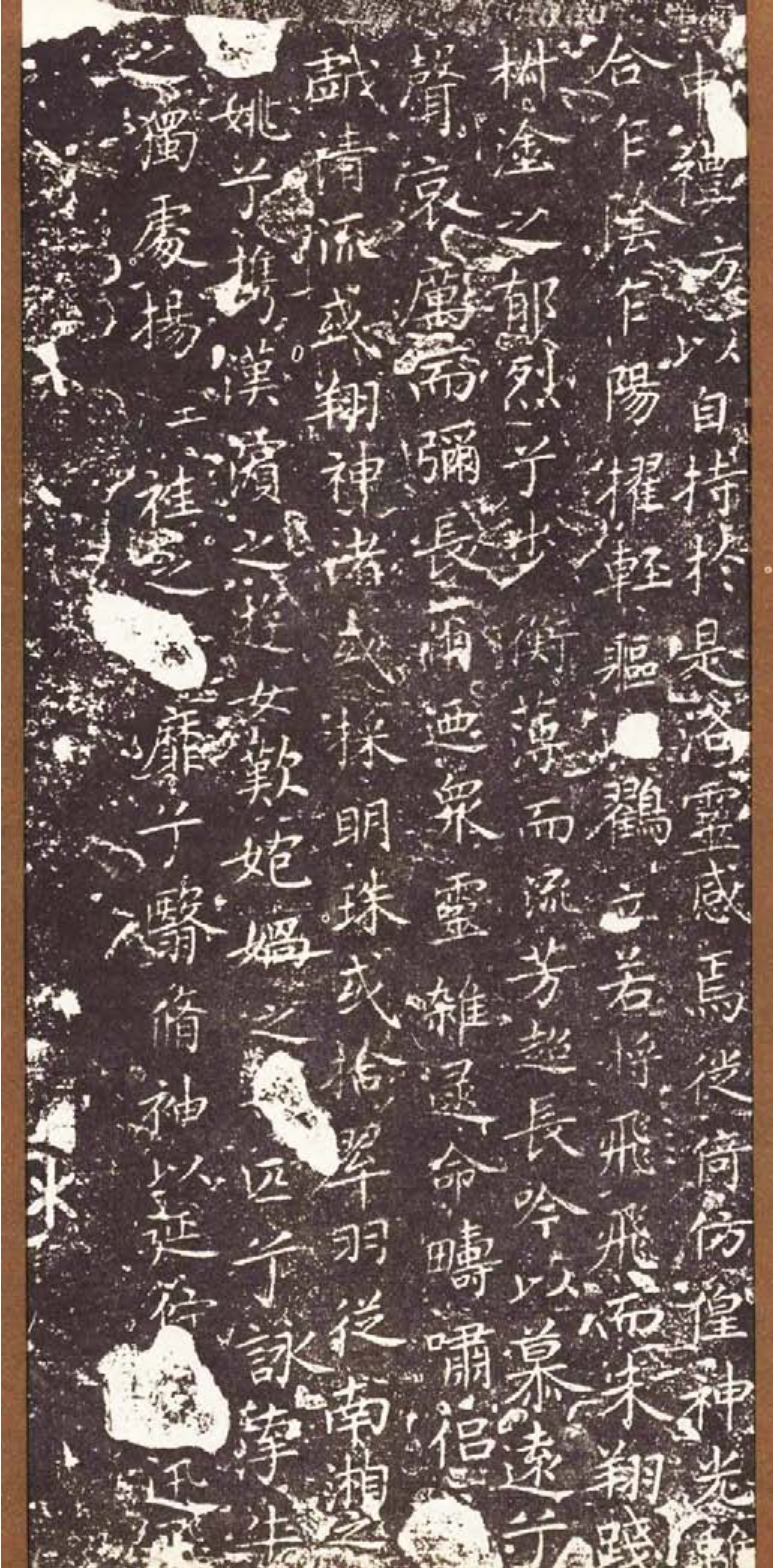 申禮方以自持於是洛靈感焉徙倚仿偟神光離
合乍陰乍陽擢輕軀鶴立若將飛飛而未翔踐
椒塗之郁烈兮步衡薄而流芳超長吟以慕遠兮
聲哀厲而彌長爾迺衆靈雜遝命疇嘯侣
戲清流或翔神渚或採明珠或拾翠羽從南湘之
姚兮攜漢濱之遊女歎炮媧之匹兮詠牽牛
之獨處揚袿之靡兮翳脩袖以延佇迅飛
水